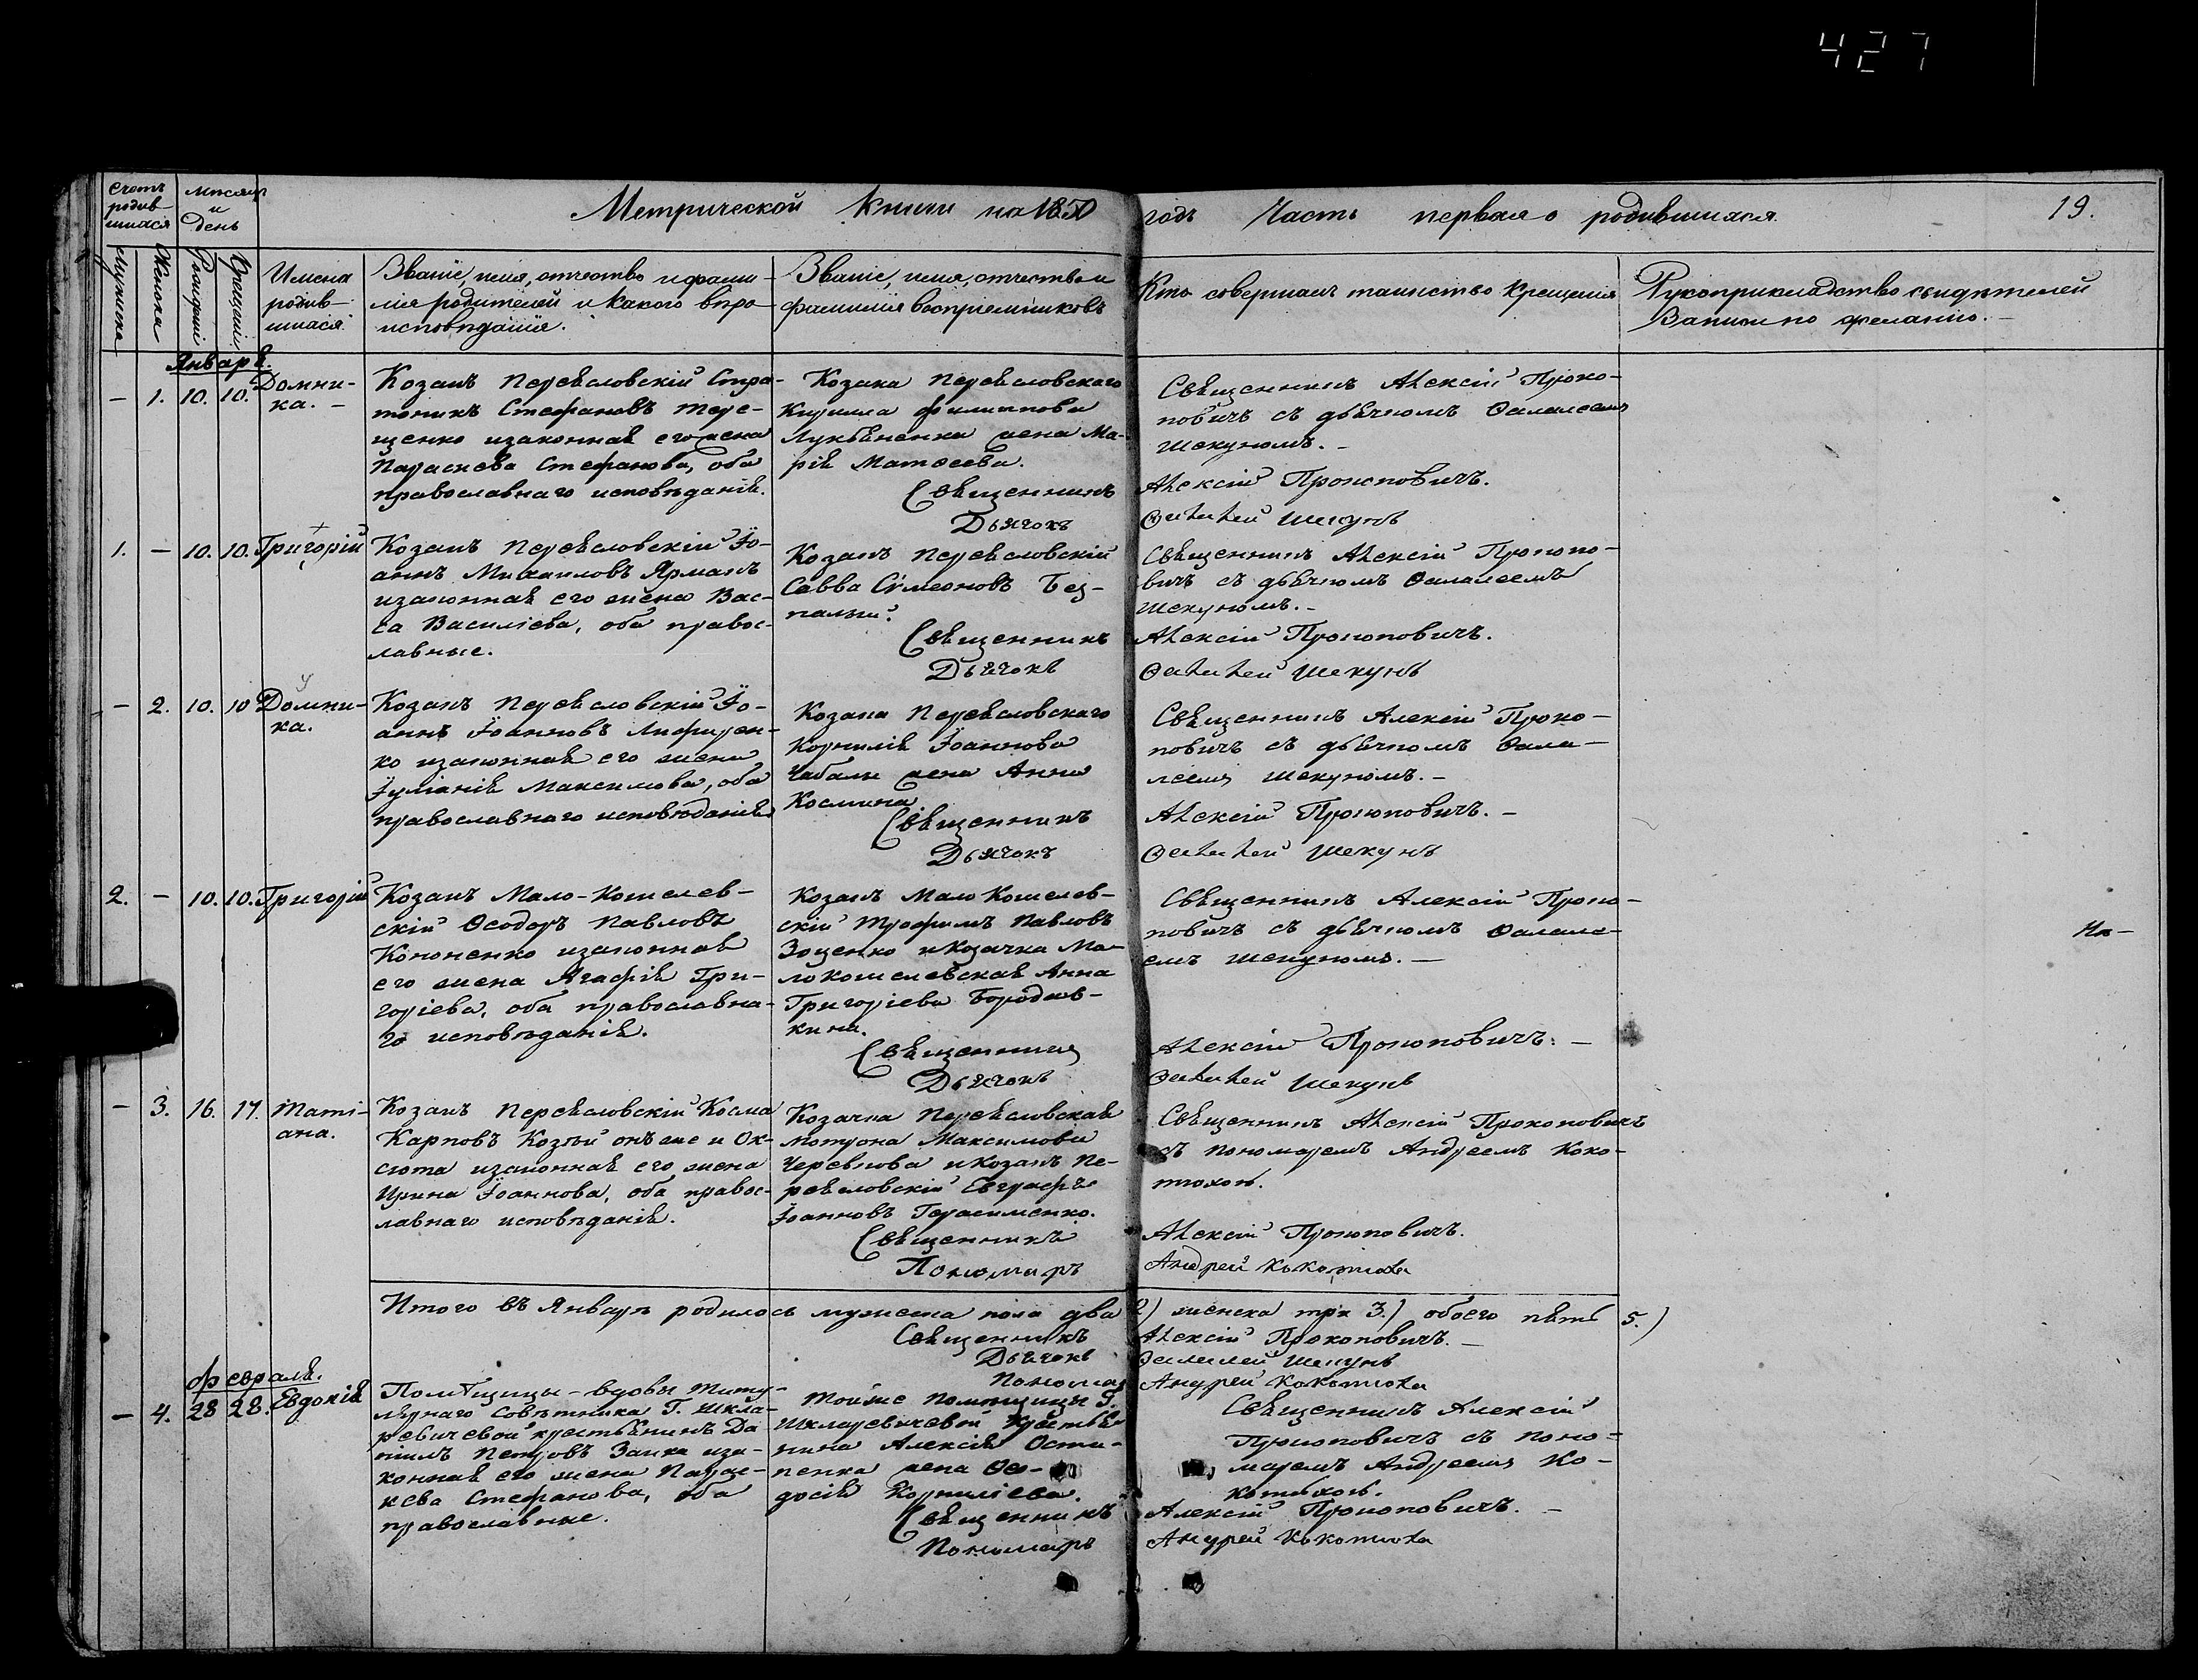 427
Метрической Книги на 1850 годъ Часть первая о родившихся. 19.
Счетъ родив-
шихся
Мѣсяцъ
и
День
Мужска
Женска
Рожденія
Крещенія
Имена
родив-
шихся.
Званіе, имя, отчество и фами-
лія родителей и какого вѣро-
исповѣданія.
Званіе, имя, отчество и
фамилія воспріемниковъ
Кто совершалъ таинство Крещенія
Рукоприкладство свидѣтелей
Записи по желанію. –
Январь.
– 1. 10. 10. Домни-
ка. –
Козакъ Переясловскій Стра-
тоникъ Стефановъ Тере-
щенко и законная его жена
Параскева Стефанова, оба
православнаго исповѣданія.
Козака Переясловскаго
Кирилла Филиппова
Лукьяненка жена Ма-
рія Матѳеева.
Священникъ
Дьячокъ
Священникъ Алексій Проко-
повичъ съ дьячкомъ Ѳалалеемъ
Шекуномъ. –
Алексій Прокоповичъ.
Ѳалалей Шекунъ
1. – 10. 10. Григорій
Козакъ Переясловскій Іо-
аннъ Михаиловъ Ярмакъ
и законная его жена Вас-
са Василіева, оба правос-
лавные.
Козакъ Переясловскій
Савва Сѵмеоновъ Без-
палый.
Священникъ
Дьячокъ
Священникъ Алексій Прокопо-
вичъ съ дьячкомъ Ѳалалеемъ
Шекуномъ. –
Алексій Прокоповичъ.
Ѳалалей Шекунъ
– 2. 10. 10 Домни-
ка.
Козакъ Переясловскій Іо-
аннъ Іоанновъ
ко и законная его жена
Іуліанія Максимова, оба
православнаго исповѣданія
Козака Переясловскаго
Корнилія Іоаннова
Чабалы жена Анна
Космина
Священникъ
Дьячокъ
Священникъ Алексій Проко-
повичъ съ дьячкомъ Ѳала-
леемъ Шекуномъ. –
Алексій Прокоповичъ. –
Ѳалалей Шекунъ
2. – 10. 10. Григорій
Козакъ Мало-Кошелев-
скій Ѳеодоръ Павловъ
Кононенко и законная
его жена Агафія Гри-
горіева, оба православна-
го исповѣданія.
Козакъ Мало Кошелев-
скій Трофимъ Павловъ
Зоценко и Козачка Ма-
локошелевская Анна
Григоріева Бородав-
кина.
Священникъ
Дьячокъ
Священникъ Алексій Проко-
повичъ съ дьячкомъ Ѳалале-
емъ Шекуномъ. –
На –
Алексій Прокоповичъ. –
Ѳалалей Шекунъ
– 3. 16. 17. Таті-
ана.
Козакъ Переясловскій Косма
Карповъ Козѣй онъ же и Ок-
сюта и законная его жена
Ирина Іоаннова, оба правос-
лавнаго исповѣданія.
Козачка Переясловская
Мотрона Максимова
Черевкова и Козакъ Пе-
реясловскій Евграфъ
Іоанновъ Герасименко.
Священникъ
Пономарь
Священникъ Алексій Прокоповичъ
съ пономаремъ Андреемъ Коко-
тюхою.
Алексій Прокоповичъ.
Андрей Кокотюха
Итого въ Январѣ родилось мужеска пола два 2) женска три 3.) обоего пять 5.)
Священникъ Алексій Прокоповичъ. –
Дьячокъ Ѳалалей Шекунъ
Пономарь Андрей Кокотюха
Февраль.
– 4. 28 28. Евдокія
Помѣщицы – вдовы Титу-
лярнаго Совѣтника Г. Шкла-
ревичевой крестьянинъ Да
ніилъ Петровъ Заика и за-
конная его жена Парас-
кева Стефанова, оба
православные.
Той же Помѣщицы Г.
Шкларевичевой Крестья-
нина Алексія Оста-
пенка жена Ѳео-
досія Корниліева.
Священникъ
Пономарь
Священникъ Алексій
Прокоповичъ съ поно-
маремъ Андреемъ Ко-
котюхою.
Алексій Прокоповичъ. –
Андрей Кокотюха